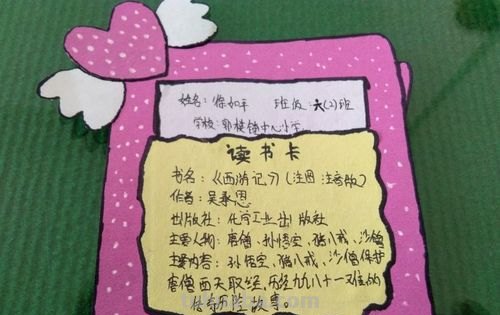 姓名：徐如平 班级：六(2)班
学校：郭楼镇中心小学
读书卡
书名：《西游记》(注图 注音版)
作者：吴承恩
出版社：化学工业出版社
主要人物：唐僧、孙悟空、猪八戒、沙僧
主要内容：孙悟空、猪八戒、沙僧保护
唐僧西天取经，历经九九八十一难的
故事。